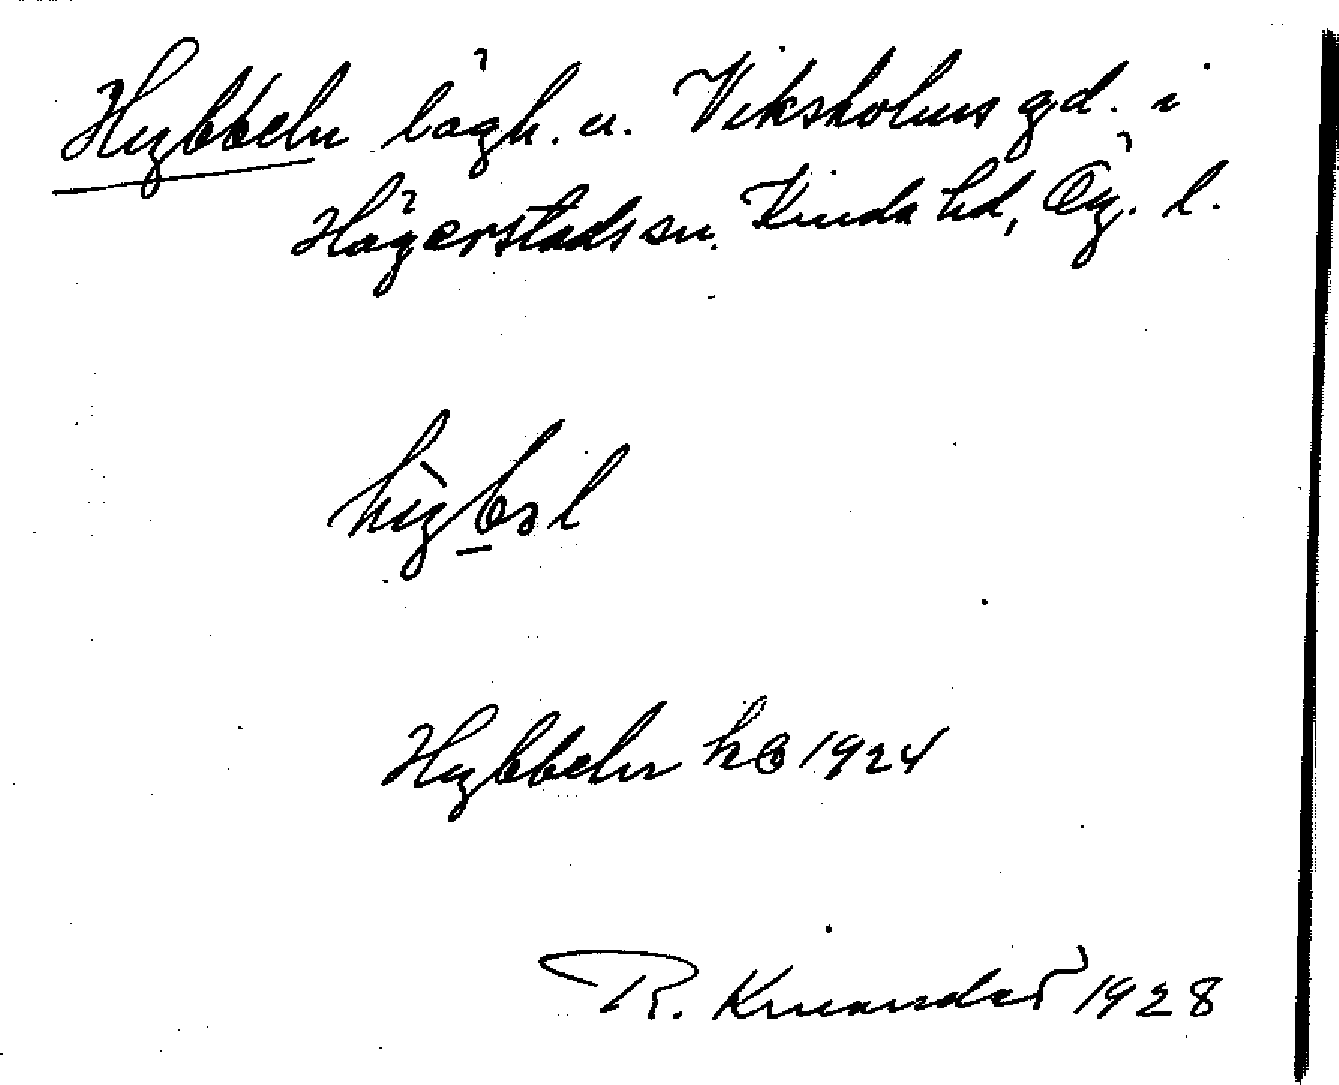 Hybbeln lägh. u. Viksholms gd. i
Hägerstads sn. Kinda hd, Ög. l.
hỳbəl
Hybbeln 1924
R. Kinander 1928